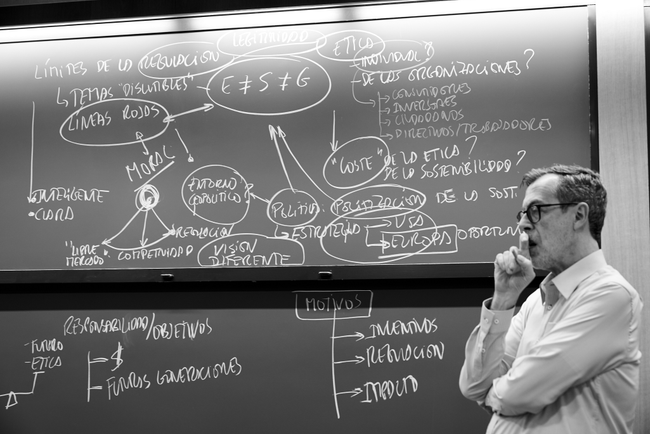 LEGITIMIDAD
LÍMITES DE LA REGULACIÓN
ETICA
(INDIVIDUAL)
DE LAS ORGANIZACIONES?
TEMAS "DISCUTIBLES"
E ≠ S ≠ G
CONSUMIDORES
INVERSORES
CIUDADANOS
DIRECTIVOS/TRABAJADORES
LÍNEAS ROJAS
MORAL
"COSTE" DE LA ETICA?
DE LA SOSTENIBILIDAD?
ENTORNO
POLÍTICA
POLARIZACIÓN DE LA SOST.
INTELIGENTE
CLARA
REGULACIÓN
ESTRATEGIA
USA
EUROPA
"LIBRE
MERCADO"
COMPETITIVIDAD
VISIÓN
DIFERENTE
MOTIVOS
RESPONSABILIDAD/OBJETIVOS
-FUTURO
-ETICA
$
FUTURAS GENERACIONES
INCENTIVOS
REGULACIÓN
IMPACTO